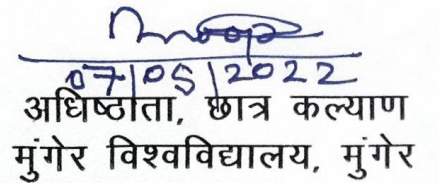 07/05/2022
अधिष्ठाता, छात्र कल्याण
मुंगेर विश्वविद्यालय, मुंगेर